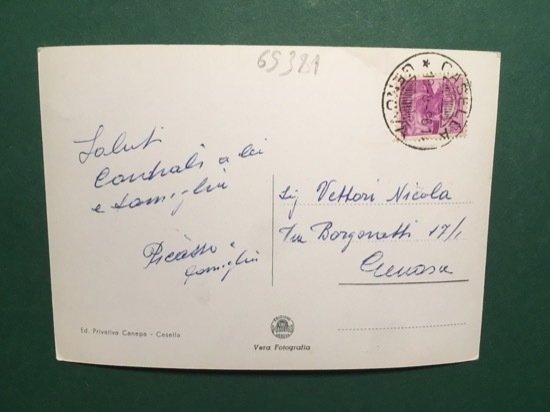 65321
CASELLA * GENOVA
Saluti
Cordiali a lei
e famiglia
Picasso e
famiglia
Sig Vettori Nicola
Via Borgoratti 17/1
Genova
Ed. Privativa Canepa - Casella
Vera Fotografia